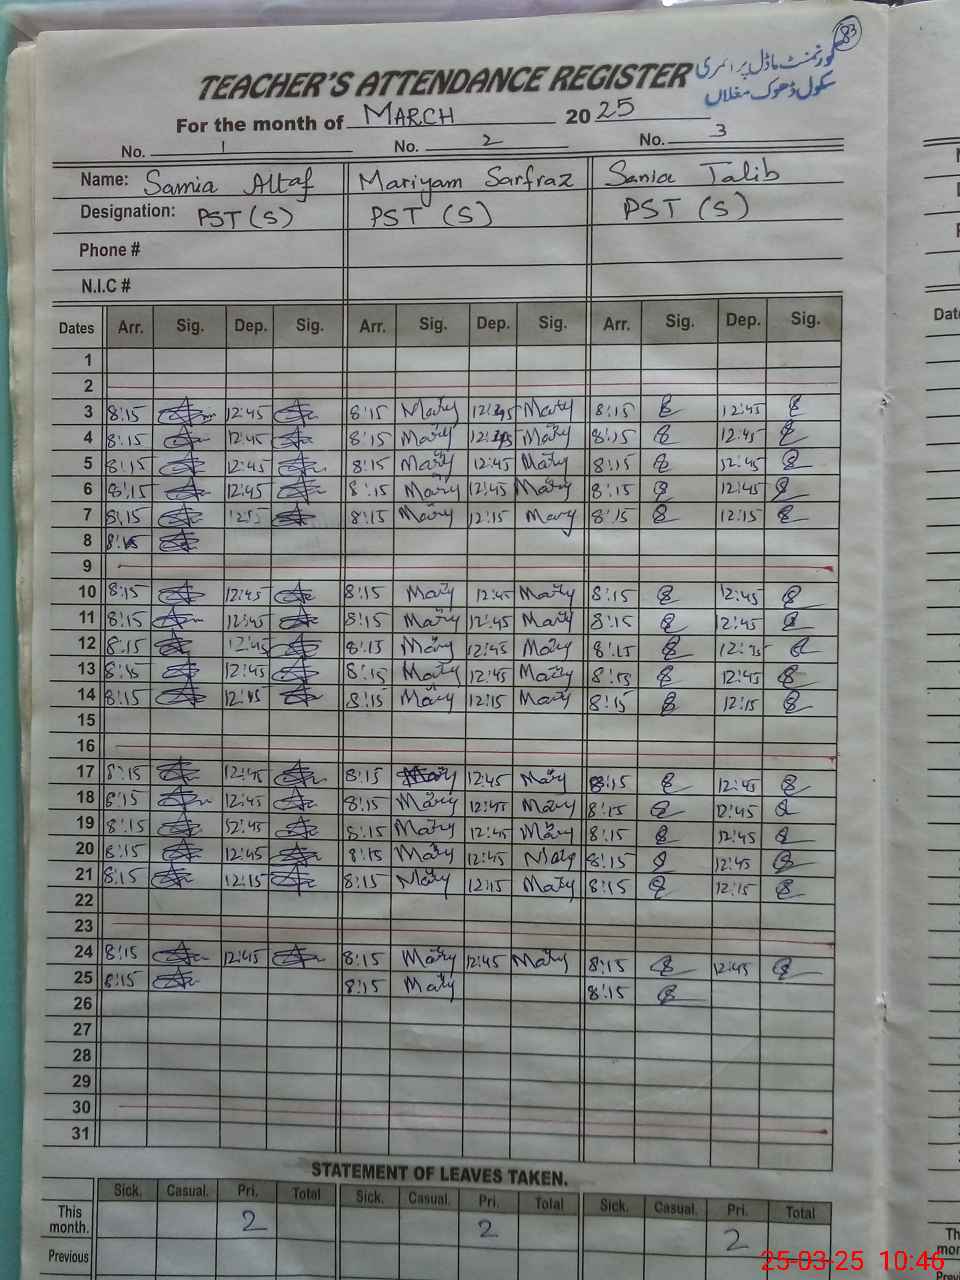 83
گورنمنٹ ماڈل پرائمری
سکول ڈھوک مغلاں
TEACHER'S ATTENDANCE REGISTER
For the month of MARCH 2025
No. 1 No. 2 No. 3
Name: Samia Altaf Mariyam Sarfraz Sania Talib
Designation: PST (S) PST (S) PST (S)
Phone #
N.I.C #
Dates Arr. Sig. Dep. Sig. Arr. Sig. Dep. Sig. Arr. Sig. Dep. Sig.
1
2
3 8:15 12:45 8:15 Mary 12:45 Mary 8:15 12:45
4 8:15 12:45 8:15 Mary 12:45 Mary 8:15 12:45
5 8:15 12:45 8:15 Mary 12:45 Mary 8:15 12:45
6 8:15 12:45 8:15 Mary 12:45 Mary 8:15 12:45
7 8:15 12:15 8:15 Mary 12:15 Mary 8:15 12:15
8 8:15
9
10 8:15 12:45 8:15 Mary 12:45 Mary 8:15 12:45
11 8:15 12:45 8:15 Mary 12:45 Mary 8:15 12:45
12 8:15 12:45 8:15 Mary 12:45 Mary 8:15
13 8:15 12:45 8:15 Mary 12:45 Mary 8:15 12:45
14 8:15 12:15 8:15 Mary 12:15 Mary 8:15 12:15
15
16
17 8:15 12:45 8:15 Mary 12:45 Mary 8:15 12:45
18 8:15 12:45 8:15 Mary 12:45 Mary 8:15 12:45
19 8:15 12:45 8:15 Mary 12:45 Mary 8:15 12:45
20 8:15 12:45 8:15 Mary 12:45 Mary 8:15 12:45
21 8:15 12:15 8:15 Mary 12:15 Mary 8:15 12:15
22
23
24 8:15 12:45 8:15 Mary 12:45 Mary 8:15 12:45
25 8:15 8:15 Mary 8:15
26
27
28
29
30
31
STATEMENT OF LEAVES TAKEN.
Sick. Casual. Pri. Total Sick. Casual. Pri. Total Sick. Casual. Pri. Total
This month. 2 2 2
Previous
25-03-25 10:46